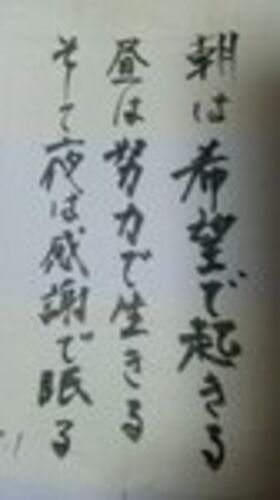 朝は希望で起きる
昼は努力で生きる
そして夜は感謝で眠る